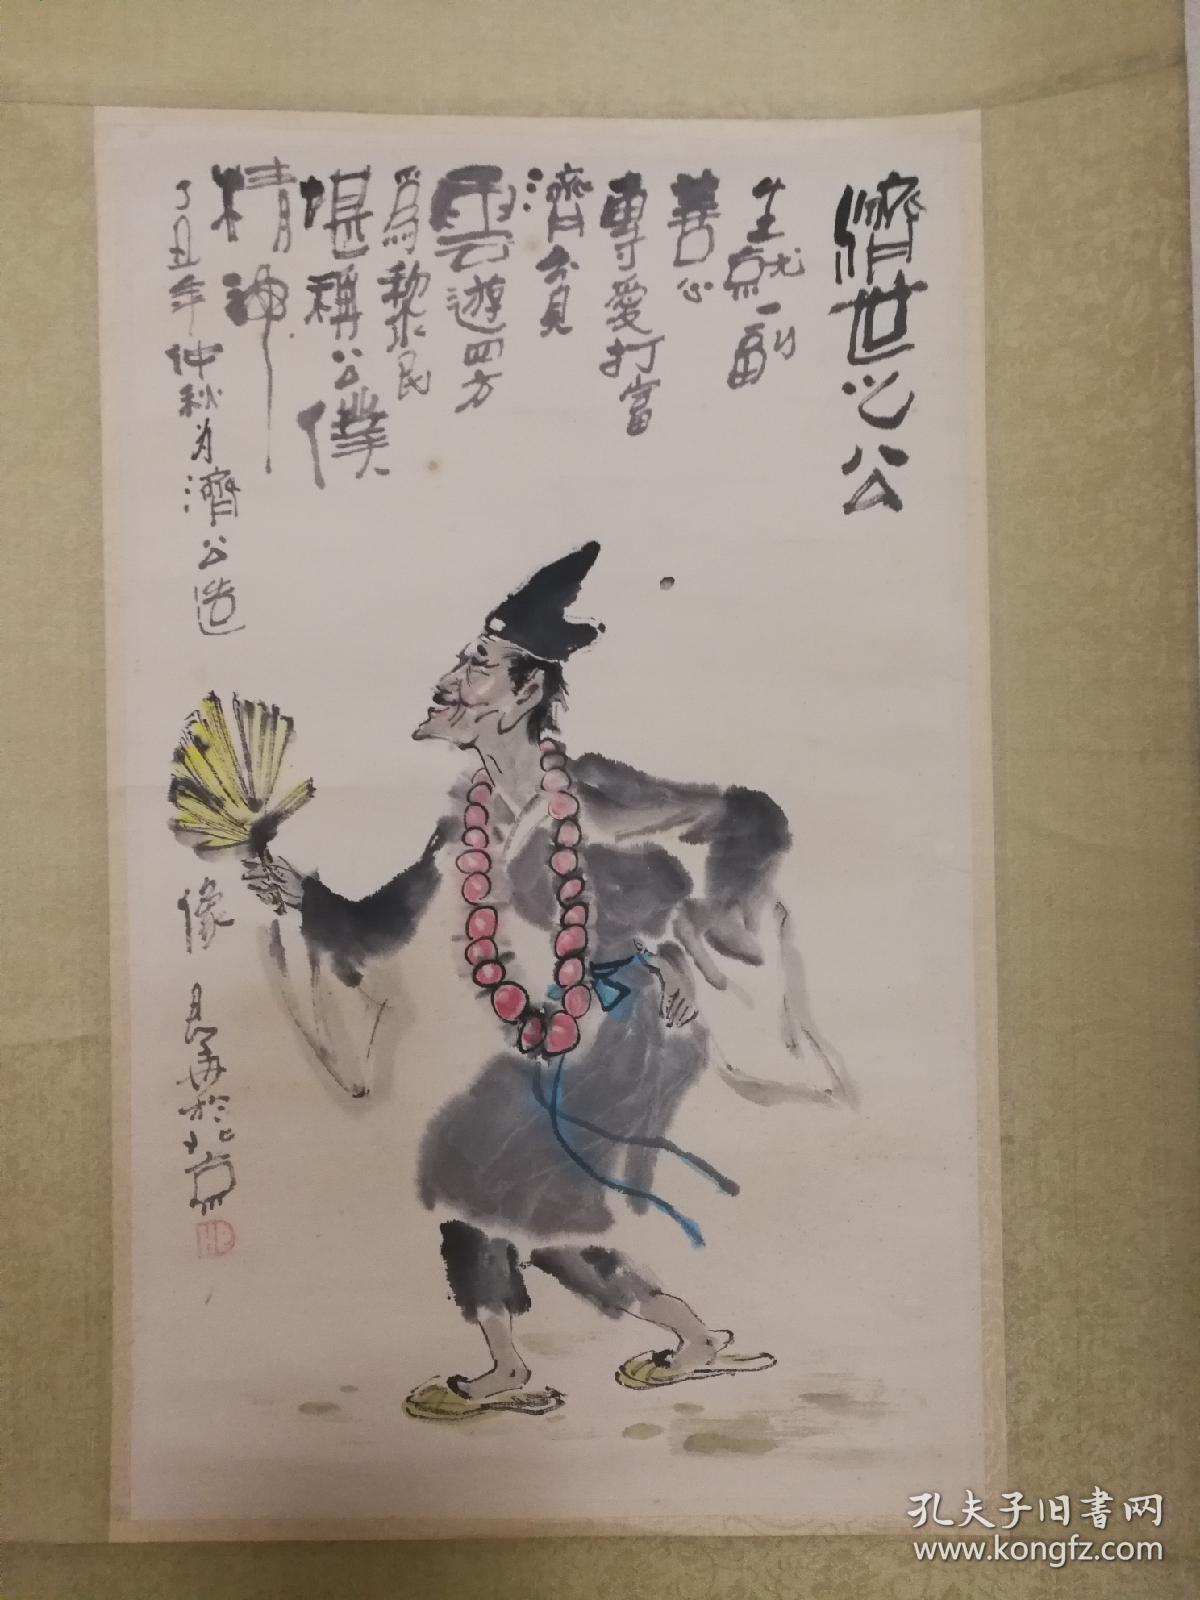 濟世之公
生就一副
善心
專愛打富
濟貧
雲遊四方
爲黎民
堪稱公僕
精神
丁丑年仲秋为濟公造
像
於北京
孔夫子旧书网
www.kongfz.com